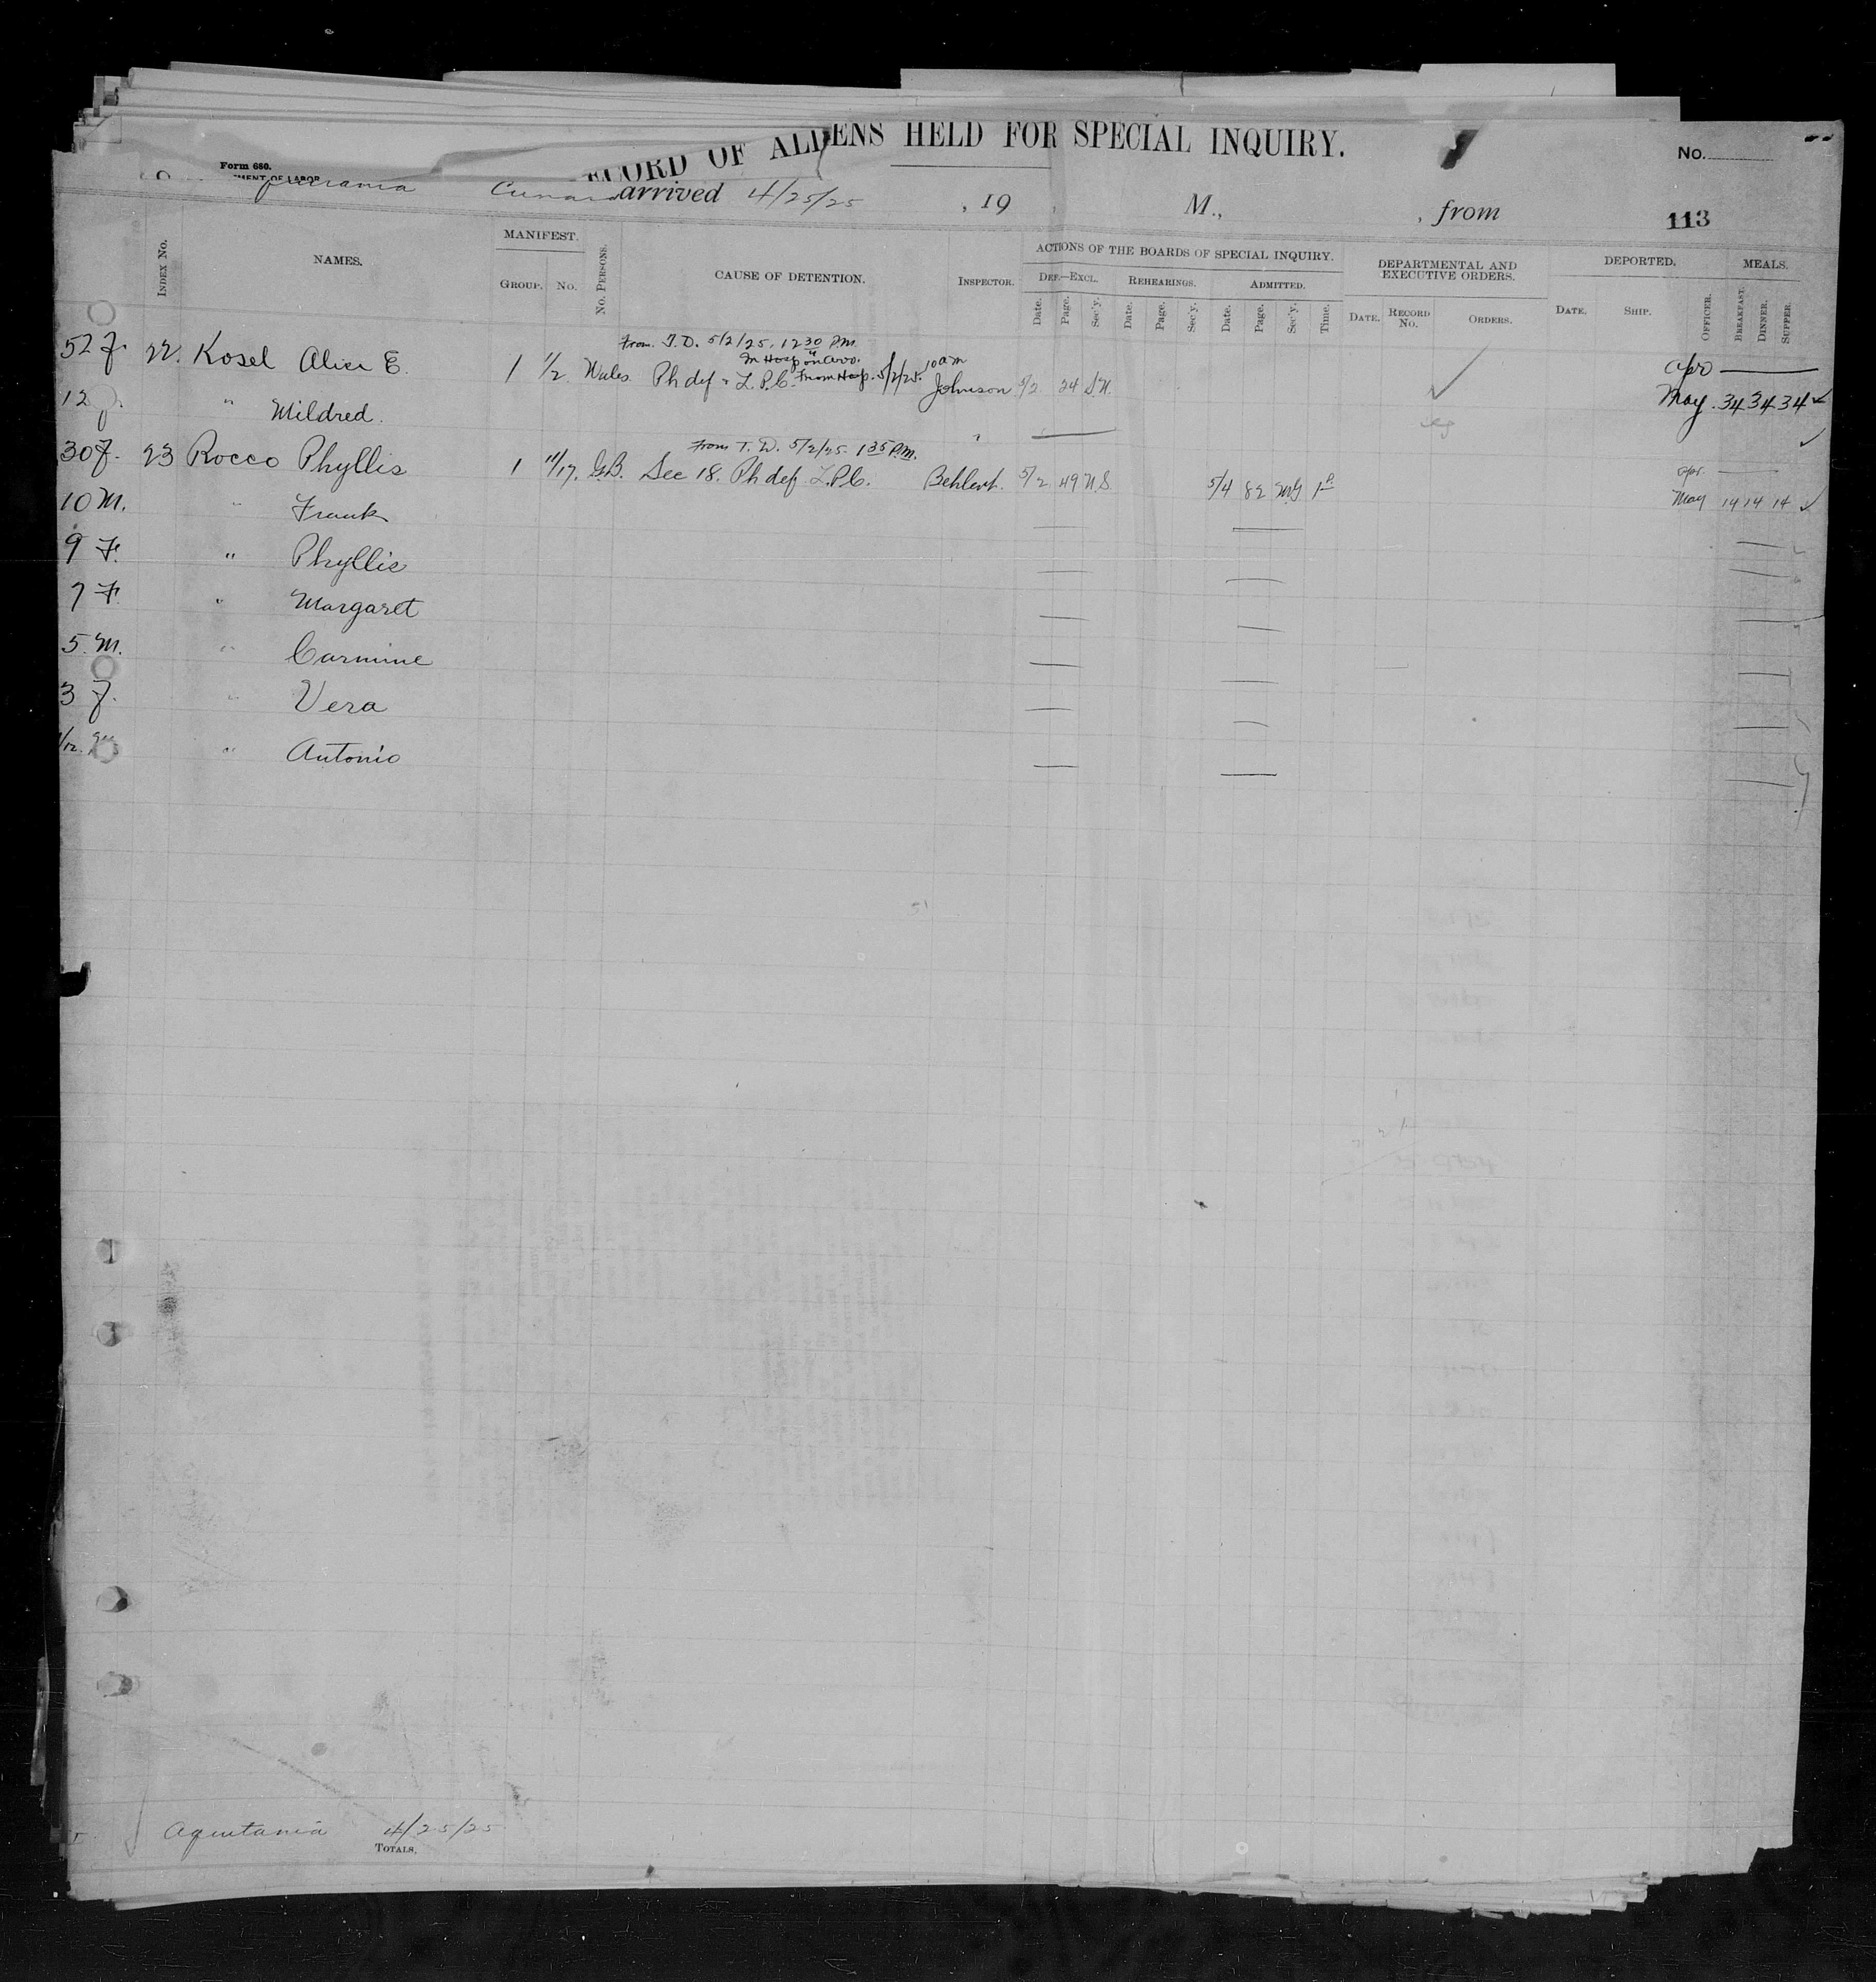 RECORD OF ALIENS HELD FOR SPECIAL INQUIRY.
No.
Form 680.
MENT OF LABOR
Cunard arrived 4/25/25 , 19 , M., , from 113
INDEX No. NAMES. MANIFEST. GROUP. No. No. PERSONS. CAUSE OF DETENTION. INSPECTOR. ACTIONS OF THE BOARDS OF SPECIAL INQUIRY. DEF.—EXCL. REHEARINGS. ADMITTED. DEPARTMENTAL AND EXECUTIVE ORDERS. DEPORTED. MEALS.
Date. Page. Sec'y. Date. Page. Sec'y. Date. Page. Sec'y. Time. DATE. RECORD No. ORDERS. DATE. SHIP. OFFICER. BREAKFAST. DINNER. SUPPER.
From T.D. 5/2/25, 12 30 P.M.
52 F. 22. Kosel Alice E. 1 1/2 Wales Ph def - L.P.C. From Hosp. 5/2/25. 10 am Johnson 5/2 24 Apr
12 " Mildred. " May 34 34 34
From T.D. 5/2/25 1 35 P.M.
30 F. 23 Rocco Phyllis 1 11/17. G.B. Sec 18. Ph def L.P.C. Behlert. 5/2 49 N.S. 5/4 82 1 P. Apr.
10 M. " Frank May 14 14 14
9 F. " Phyllis
7 F. " Margaret
5. M. " Carmine
3 F. " Vera
" Antonio
Aquitania 4/25/25
TOTALS.